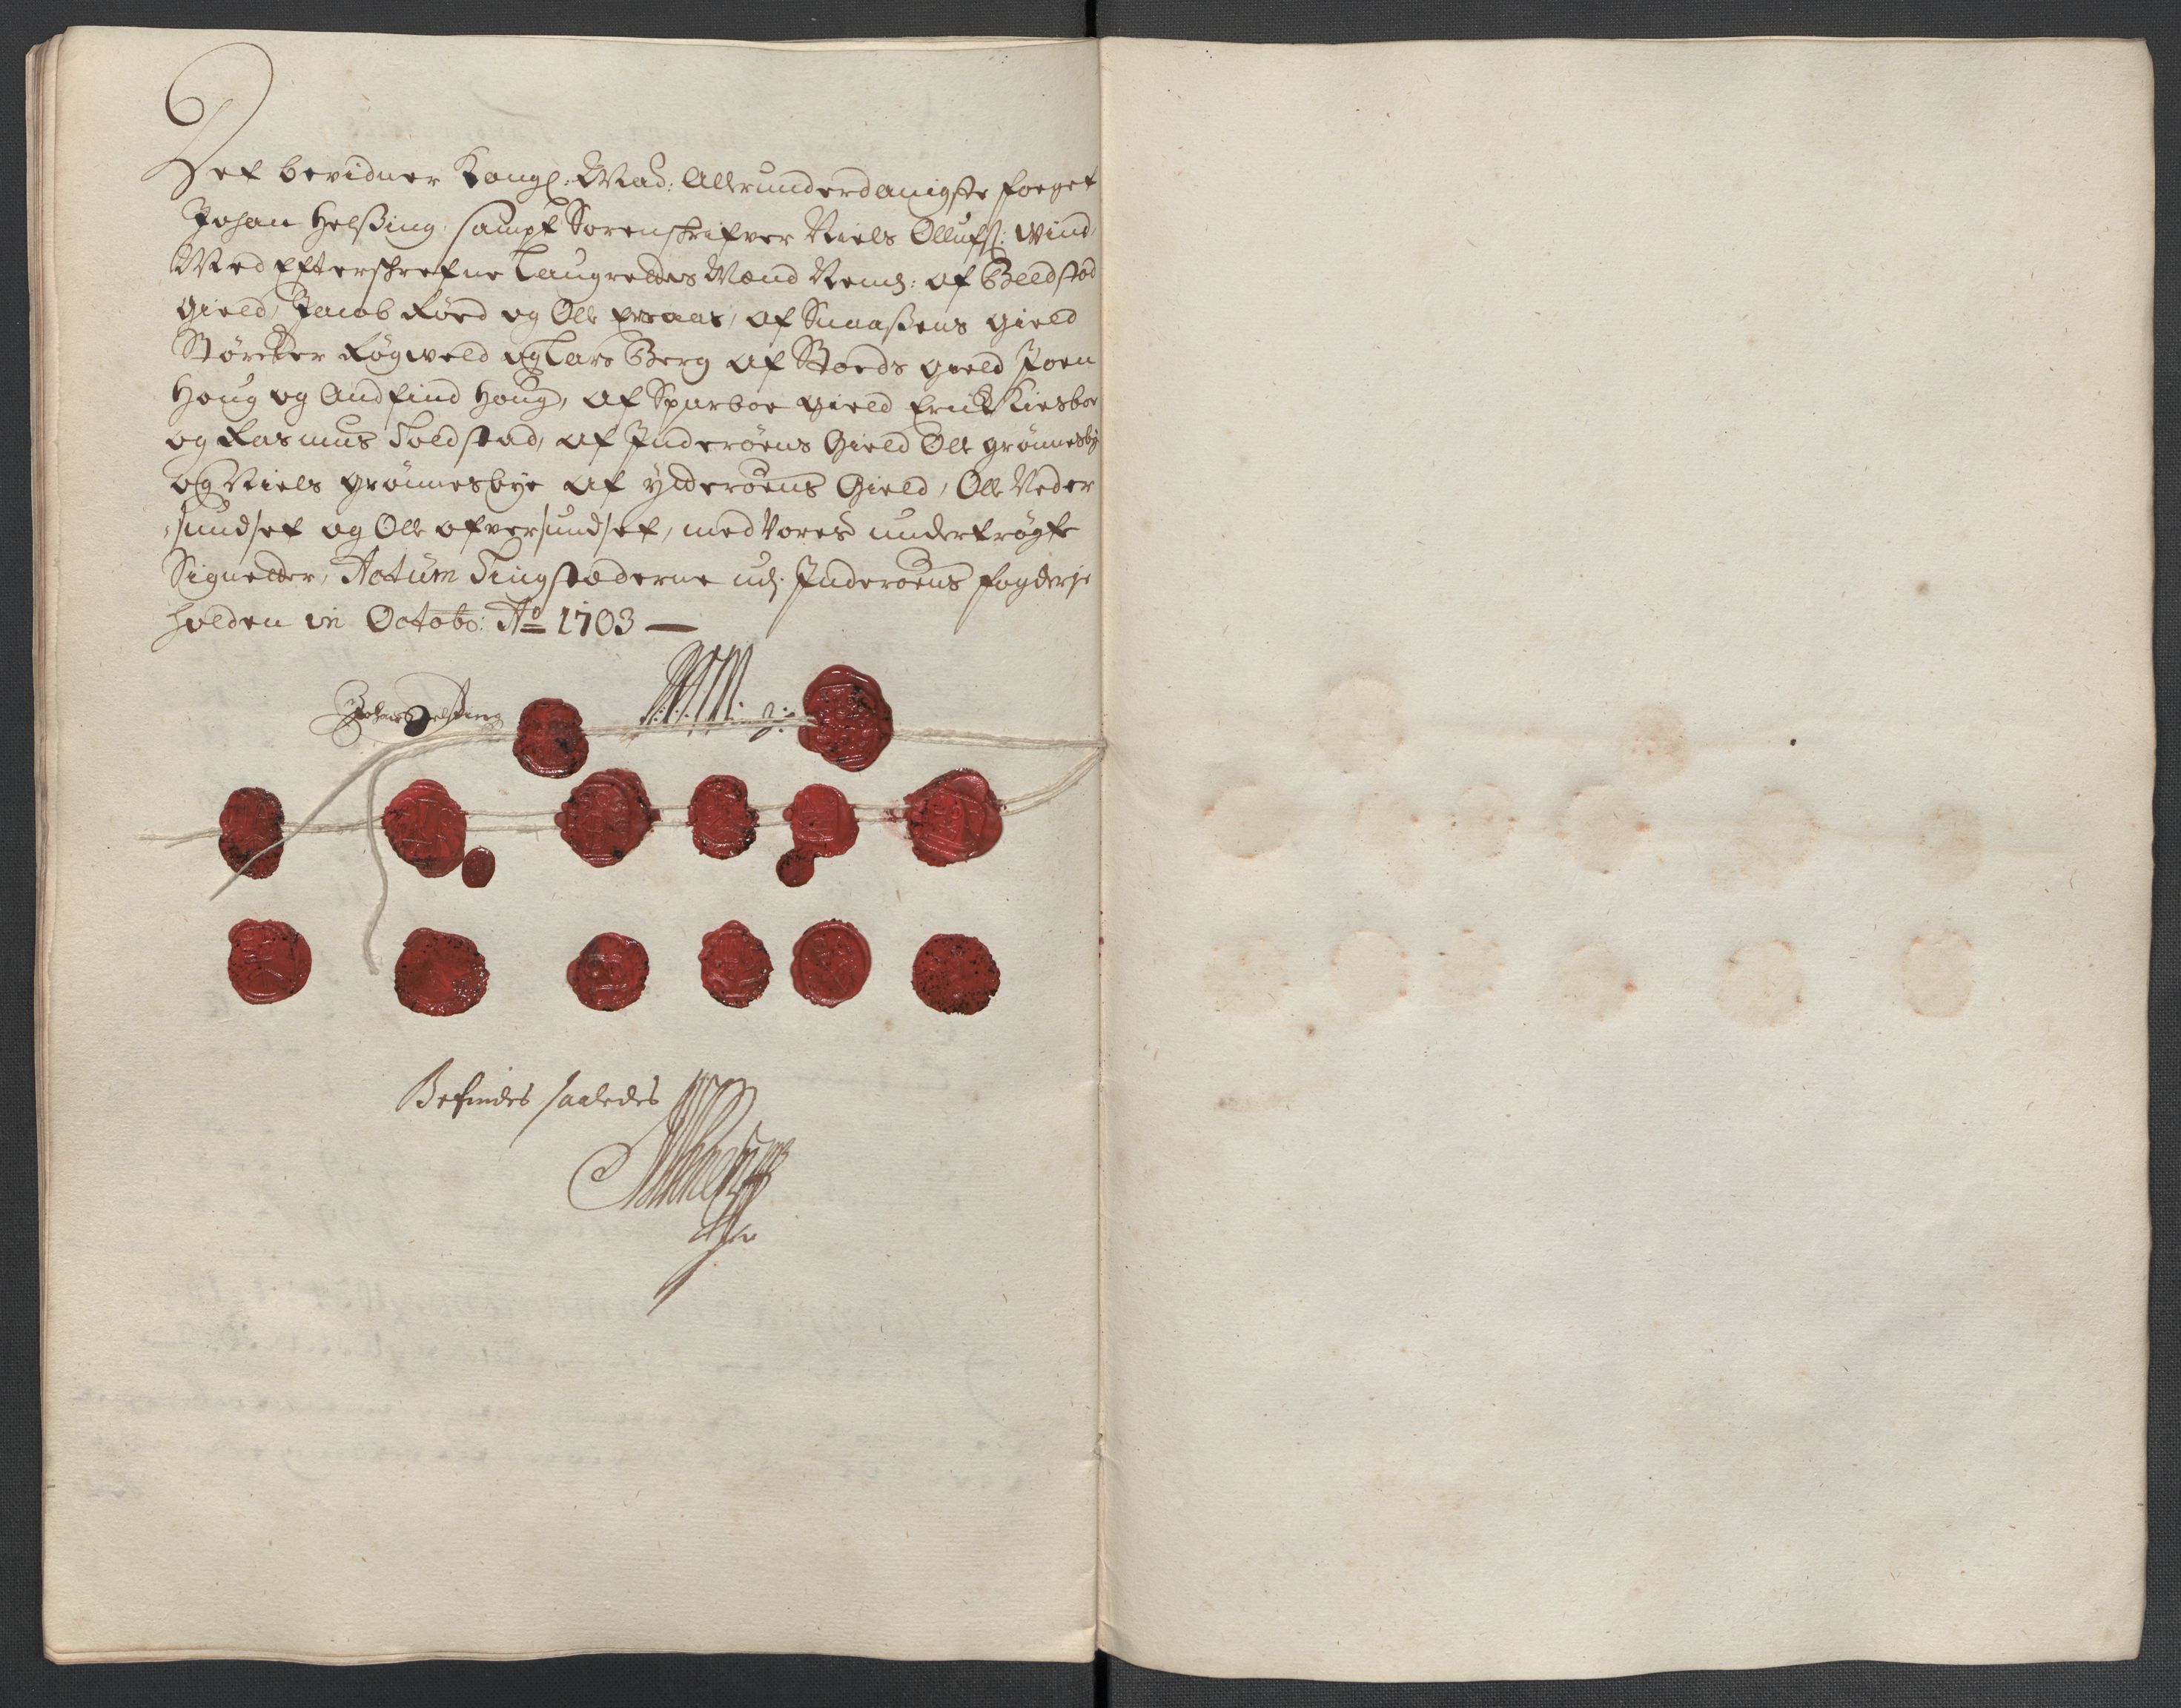 Det bevidner Kongl: Maÿd: Allerunderdanigste foeget
Johan Helsing, sampt Sorenskrifver Niels Ollufs: Wind,
Med Efterskrefne Laugrettes Mænd Neml: af Beedstad
Gield, Jacob Røed og Olle Aas, af Snaasens Gield
Størcker Røgweld og Lars Berg af Stoeds Gield Joen
Houg og Andfind Houg, af Sparboe Gield Erick Kiesboe
og Rasmus Toldstad, af Inderøens Gield Olle Grønnesby
og Niels Grønnesbye af Ytterøens Gield, Olle Neder
sundset og Olle ofversundset, med Vores undertrøgte
Signetter, Actum Tingstæderne udj Inderøens fogderje
holden in Octobr: Ao 1703 —
Johan Helsing
Befindes saaledes